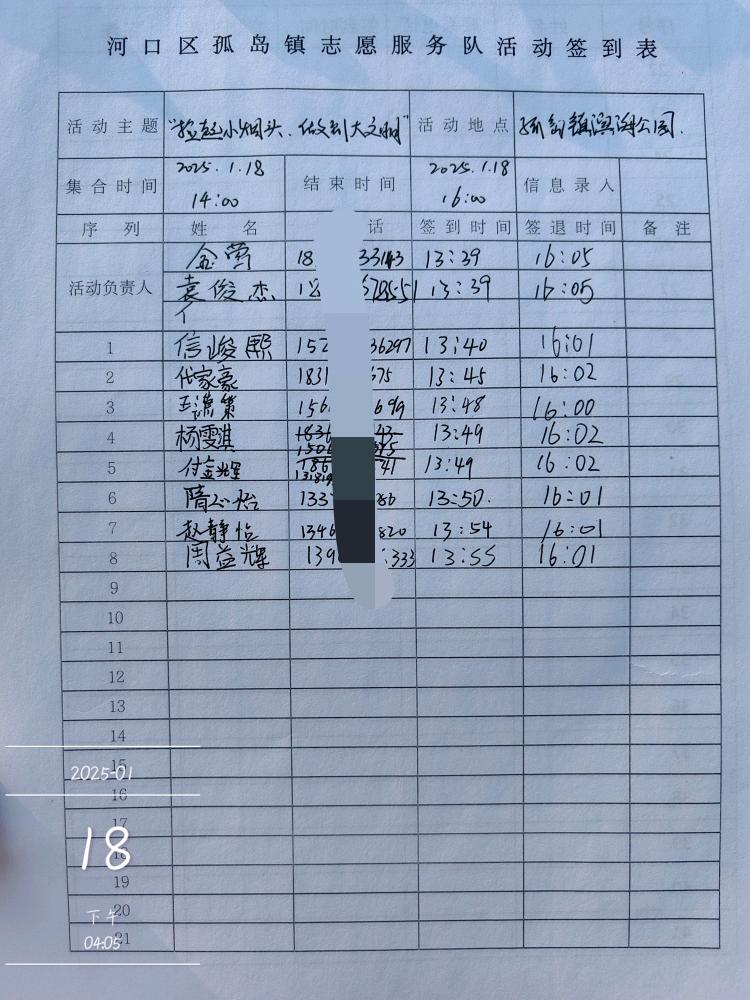 河口区孤岛镇志愿服务队活动签到表
活动主题 "捡起小烟头、做到大文明" 活动地点 孤岛镇滨海公园.
集合时间 2025.1.18 14:00 结束时间 2025.1.18 16:00 信息录入
序列 姓名 话 签到时间 签退时间 备注
活动负责人 金莺 18 33143 13:39 16:05
袁俊杰 13:39 16:05
1 信峻熙 152 36297 13:40 16:01
2 代家豪 1831 675 13:45 16:02
3 156 699 13:48 16:00
4 杨雯淇 13:49 16:02
5 付金辉 186 41 13:49 16:02
6 隋心怡 133 86 13:50. 16:01
7 赵静怡 1346 820 13:54 16:01
8 周益辉 139 333 13:55 16:01
9
10
11
12
13
14
15
16
17
18
19
20
21
2025-01
18
下午
04:05